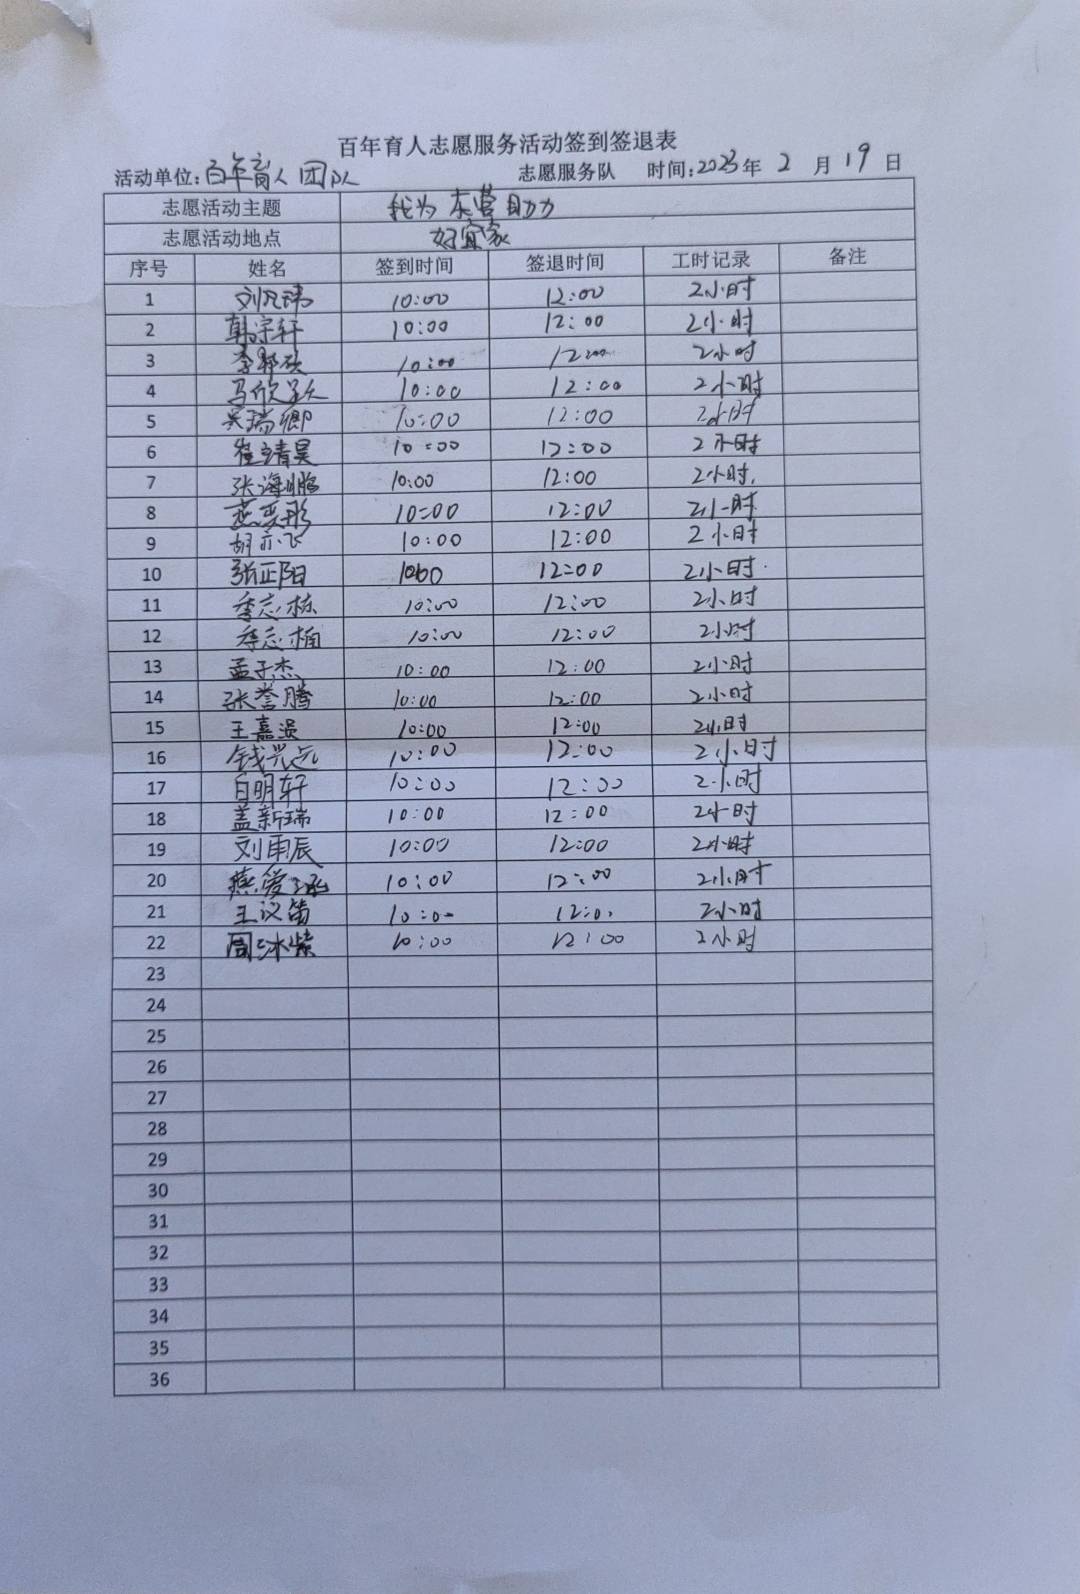 百年育人志愿服务活动签到签退表
活动单位:百年育人团队 志愿服务队 时间:2023年 2 月 19 日
志愿活动主题 我为东营助力
志愿活动地点 好宜家
序号 姓名 签到时间 签退时间 工时记录 备注
1 10:00 12:00 2小时
2 韩宗轩 10:00 12:00 2小时
3 10:00 12:00 2小时
4 10:00 12:00 2小时
5 吴瑞卿 10:00 12:00 2小时
6 崔靖昊 10:00 12:00 2小时
7 张海鹏 10:00 12:00 2小时
8 燕奕彤 10:00 12:00 2小时
9 胡亦飞 10:00 12:00 2小时
10 张正阳 10:00 12:00 2小时
11 季志栋 10:00 12:00 2小时
12 季志楠 10:00 12:00 2小时
13 孟子杰 10:00 12:00 2小时
14 张誉腾 10:00 12:00 2小时
15 10:00 12:00 2小时
16 钱兴远 10:00 12:00 2小时
17 白明轩 10:00 12:00 2小时
18 盖新瑞 10:00 12:00 2小时
19 刘雨辰 10:00 12:00 2小时
20 10:00 12:00 2小时
21 王议笛 10:00 12:00 2小时
22 周冰紫 10:00 12:00 2小时
23
24
25
26
27
28
29
30
31
32
33
34
35
36